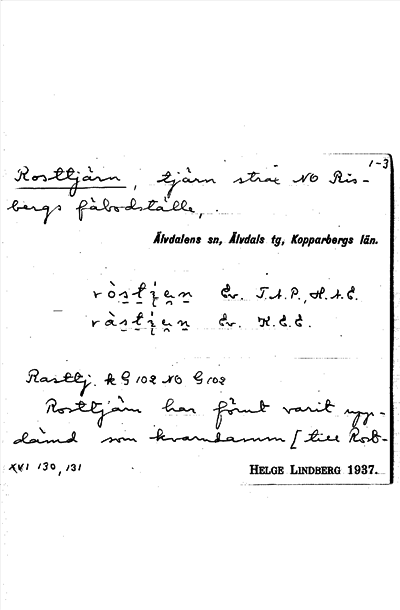 1-3
Rosttjärn, tjärn strax NO Ris-
bergs fäbodställe,
Älvdalens sn, Älvdals tg, Kopparbergs län.
Ev. T.A.P., H.A.E.
Ev. K.E.E.
Rasttj. k G 102 NO G 102
Rosttjärn har förut varit upp-
dämd som kvarndamm [till Rost-
XVI 130, 131
HELGE LINDBERG 1937.